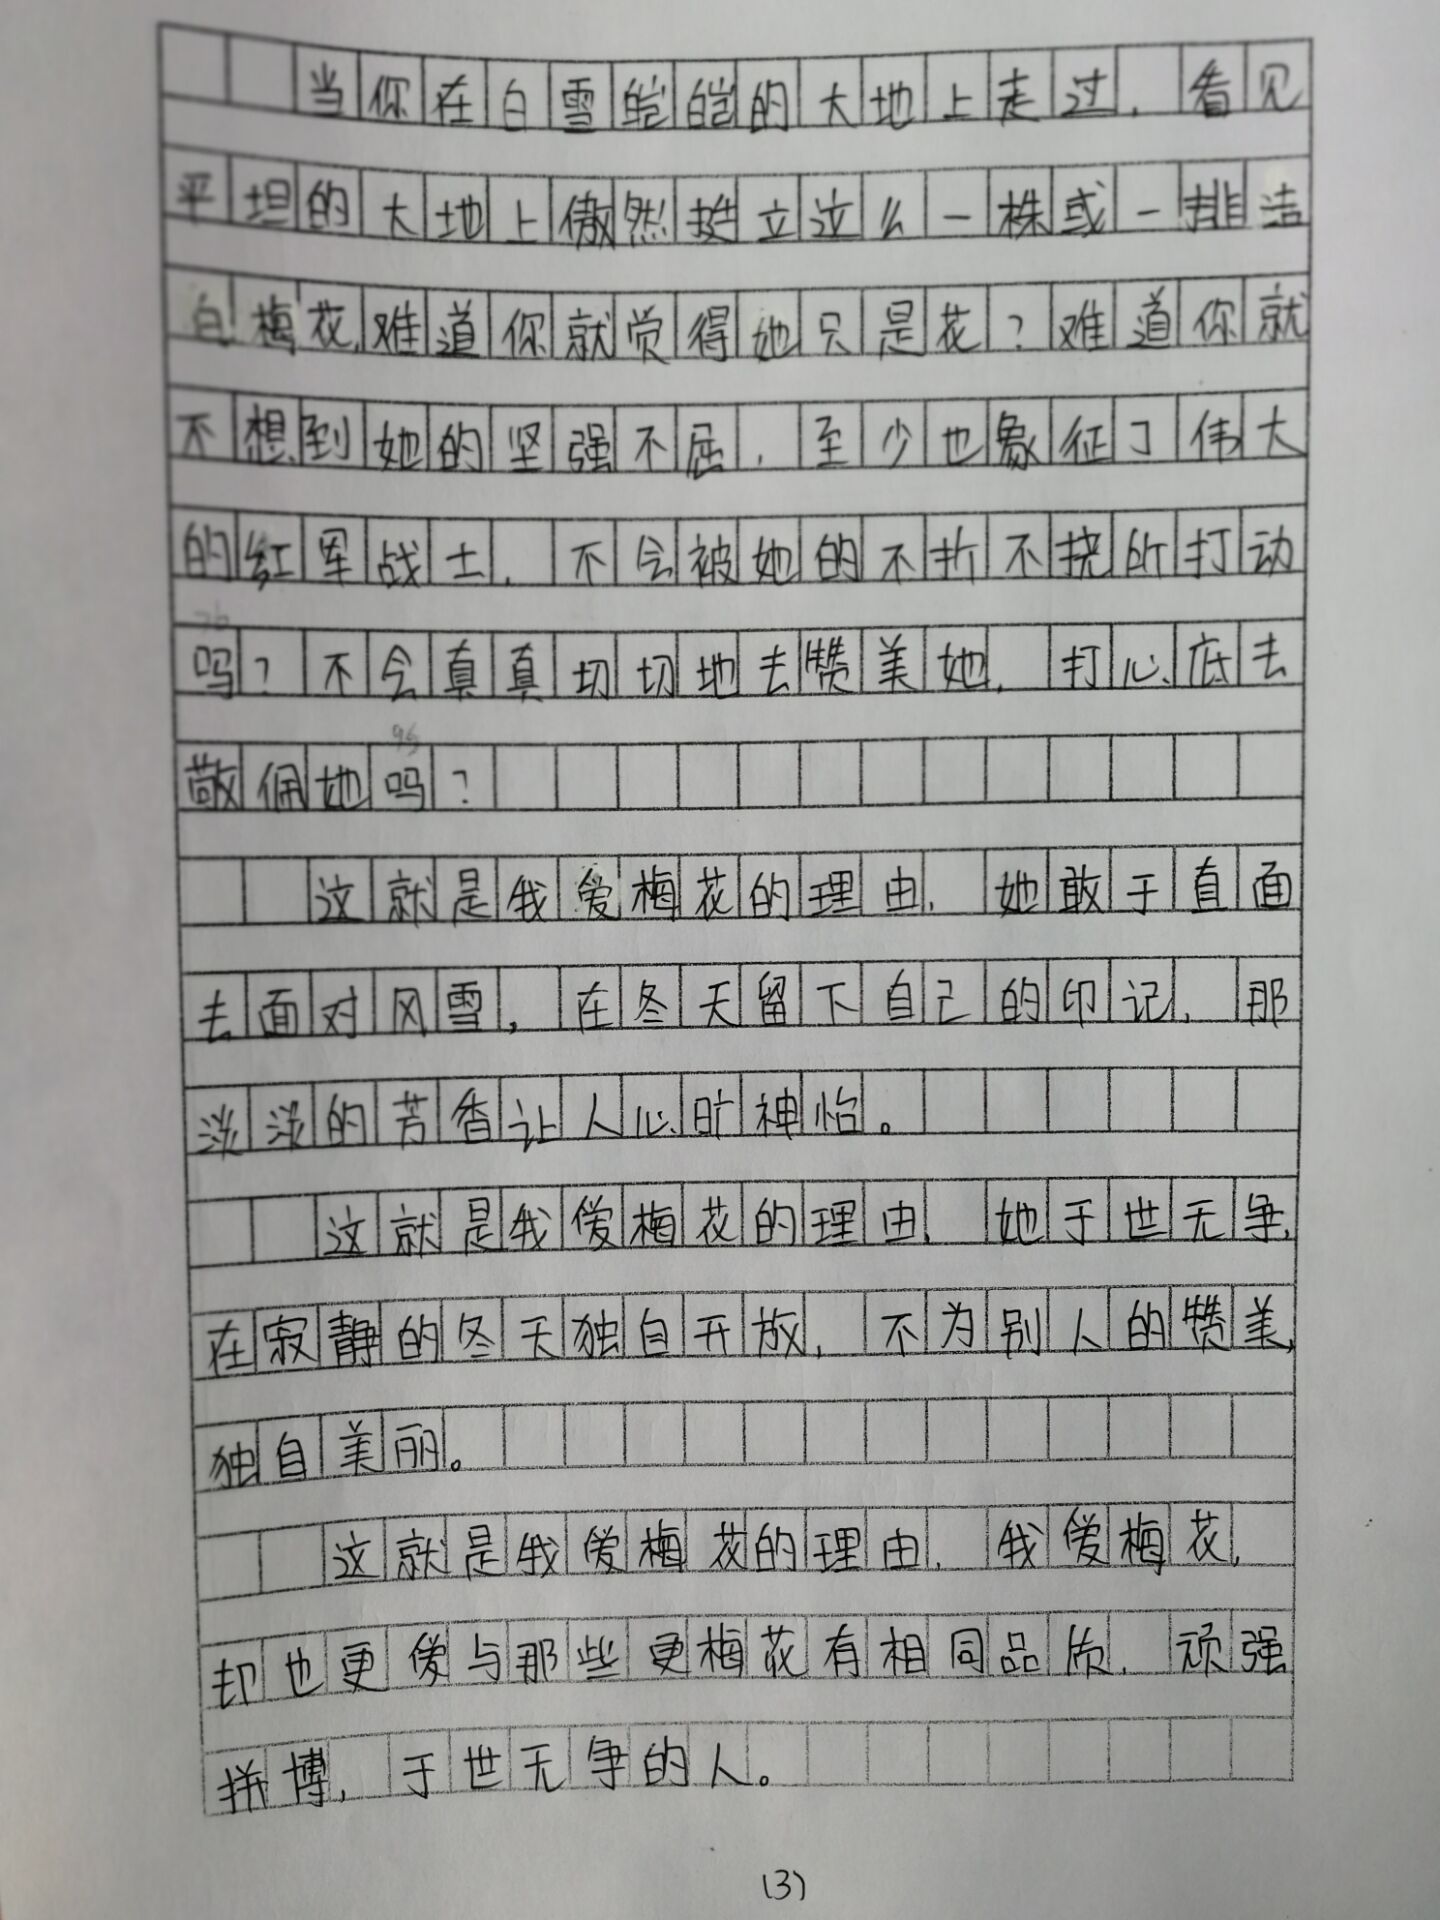 当你在白雪皑皑的大地上走过,看见
平坦的大地上傲然挺立这么一株或一排洁
白梅花,难道你就觉得她只是花?难道你就
不想到她的坚强不屈,至少也象征了伟大
的红军战士,不会被她的不折不挠所打动
吗?不会真真切切地去赞美她,打心底去
敬佩她吗?
这就是我爱梅花的理由,她敢于直面
去面对风雪,在冬天留下自己的印记,那
淡淡的芳香让人心旷神怡。
这就是我爱梅花的理由,她于世无争,
在寂静的冬天独自开放,不为别人的赞美,
独自美丽。
这就是我爱梅花的理由,我爱梅花,
却也更爱与那些更梅花有相同品质,顽强
拼博,于世无争的人。
(3)